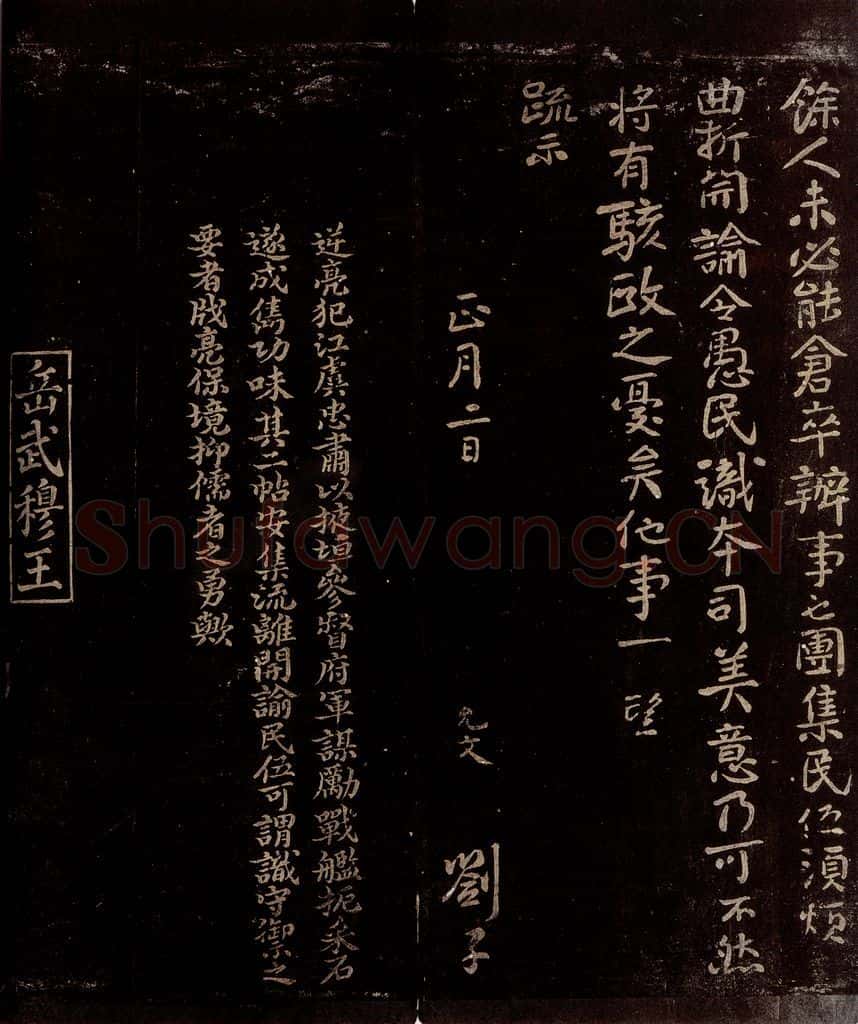 餘人未必能倉卒辦事也團集民伍須煩
曲折開諭令愚民識本司美意乃可不然
將有駭敗之憂矣他事一一望
疏示
正月二日 允文 劄子
逆亮犯江虞忠肅以掖垣參督府軍謀勵戰艦扼采石
遂成雋功味其二帖安集流離開諭民伍可謂識守禦之
要者戕亮保境抑儒者之勇歟
岳武穆王
Shufawang.CN